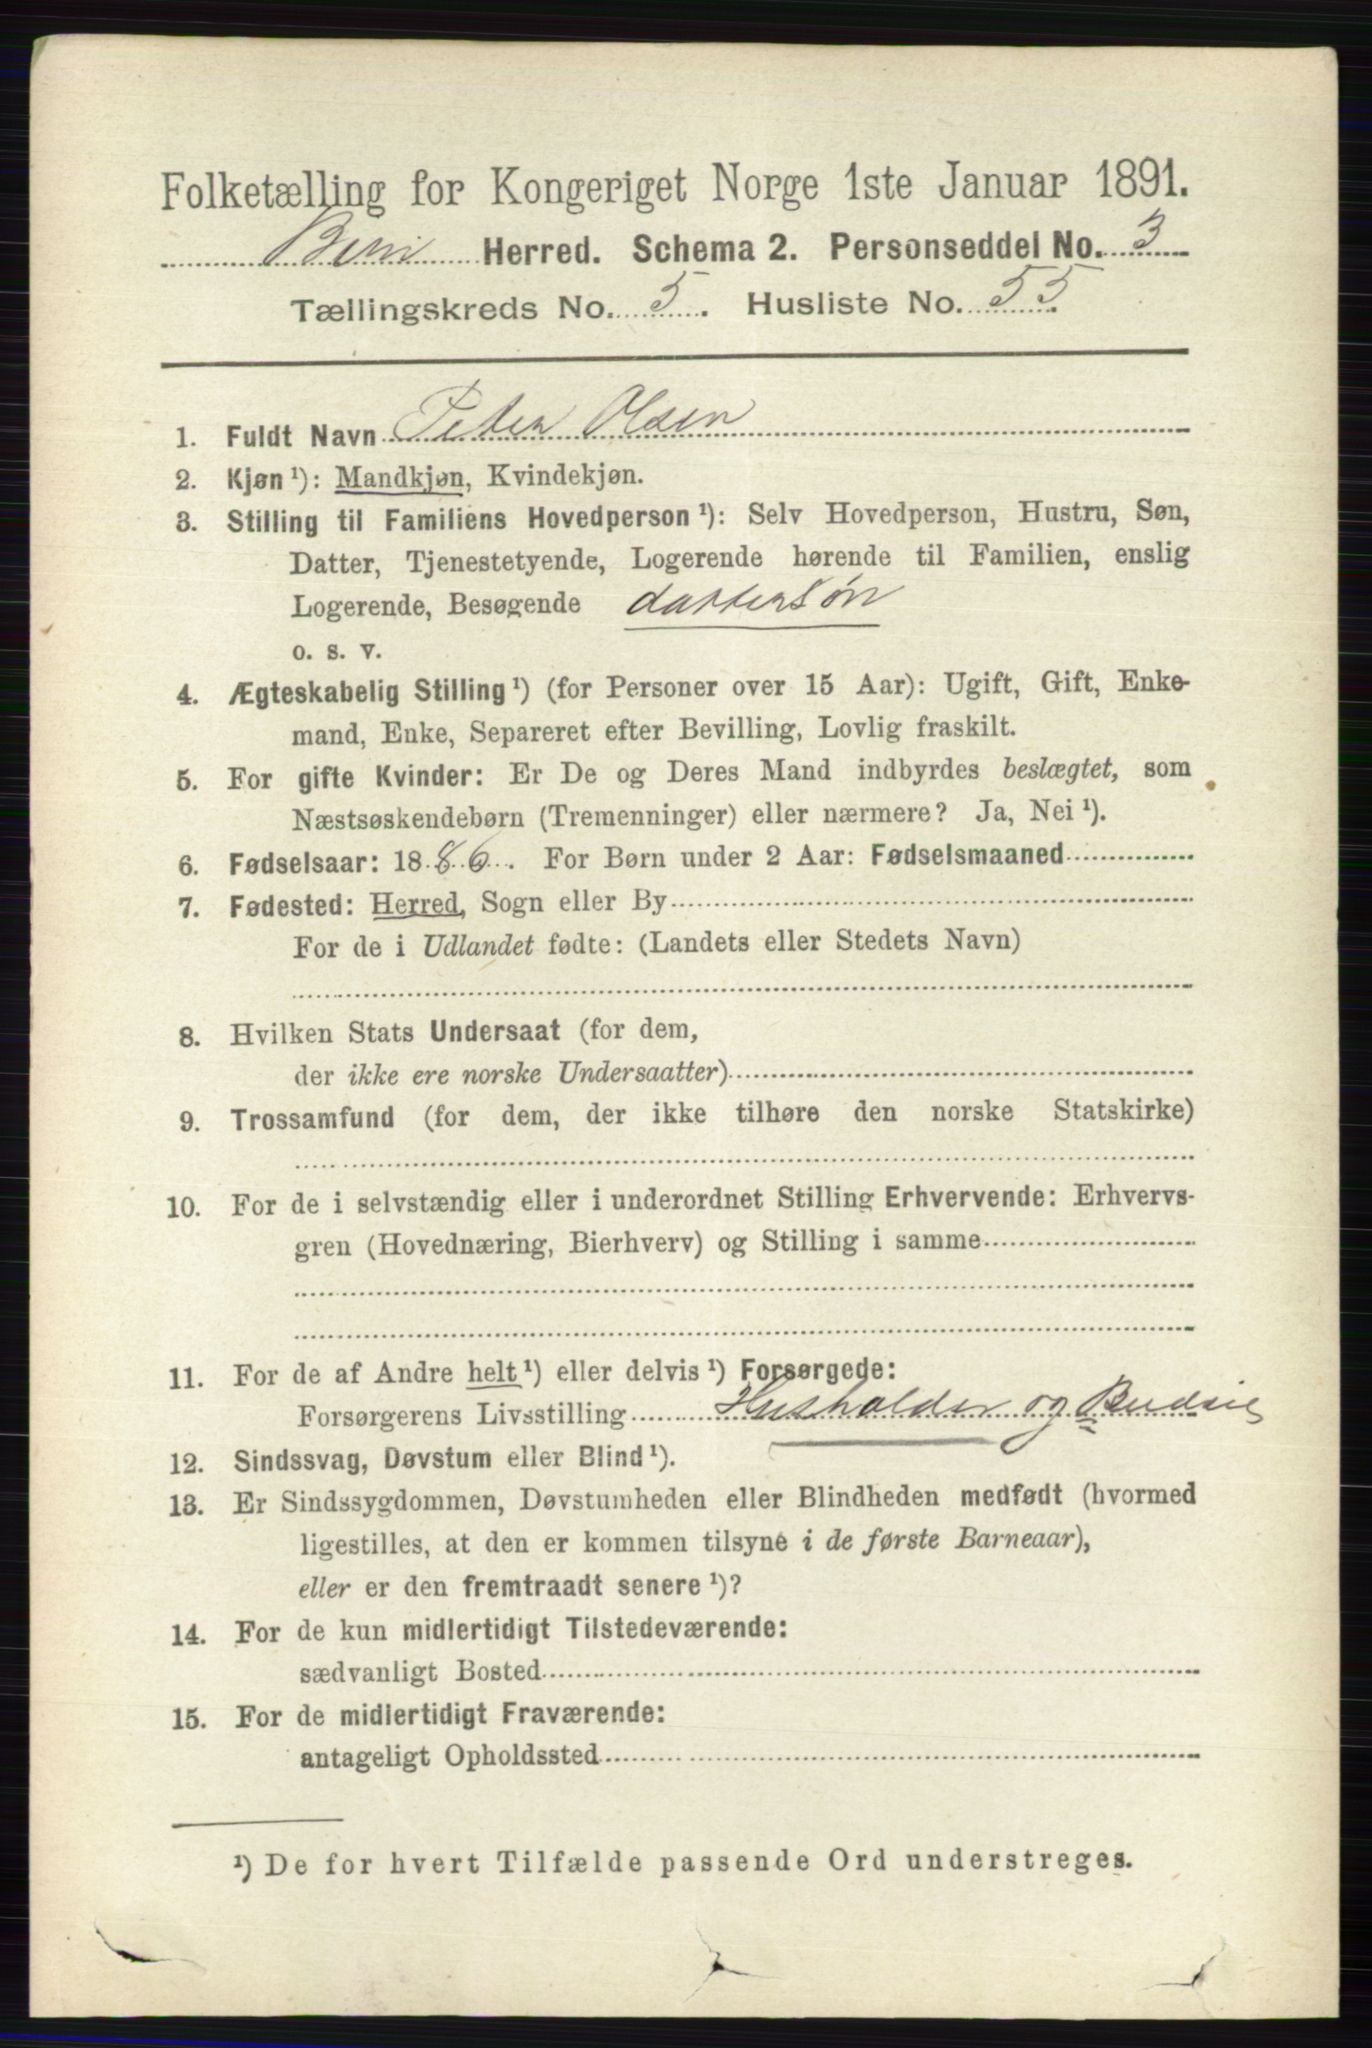 Folketælling for Kongeriget Norge 1ste Januar 1891.
Herred. Schema 2. Personseddel No. 3
Tællingskreds No. 5. Husliste No. 55
1. Fuldt Navn Peter Olsen
2. Kjøn ¹): Mandkjøn, Kvindekjøn.
3. Stilling til Familiens Hovedperson ¹): Selv Hovedperson, Hustru, Søn,
Datter, Tjenestetyende, Logerende hørende til Familien, enslig
Logerende, Besøgende dattersøn
o. s. v.
4. Ægteskabelig Stilling ¹) (for Personer over 15 Aar): Ugift, Gift, Enke-
mand, Enke, Separeret efter Bevilling, Lovlig fraskilt.
5. For gifte Kvinder: Er De og Deres Mand indbyrdes beslægtet, som
Næstsøskendebørn (Tremenninger) eller nærmere? Ja, Nei ¹).
6. Fødselsaar: 1886. For Børn under 2 Aar: Fødselsmaaned
7. Fødested: Herred, Sogn eller By
For de i Udlandet fødte: (Landets eller Stedets Navn)
8. Hvilken Stats Undersaat (for dem,
der ikke ere norske Undersaatter)
9. Trossamfund (for dem, der ikke tilhøre den norske Statskirke)
10. For de i selvstændig eller i underordnet Stilling Erhvervende: Erhvervs-
gren (Hovednæring, Bierhverv) og Stilling i samme
11. For de af Andre helt ¹) eller delvis ¹) Forsørgede:
Forsørgerens Livsstilling Husholder og Budeie
12. Sindssvag, Døvstum eller Blind ¹).
13. Er Sindssygdommen, Døvstumheden eller Blindheden medfødt (hvormed
ligestilles, at den er kommen tilsyne i de første Barneaar),
eller er den fremtraadt senere ¹)?
14. For de kun midlertidigt Tilstedeværende:
sædvanligt Bosted
15. For de midlertidigt Fraværende:
antageligt Opholdssted
¹) De for hvert Tilfælde passende Ord understreges.